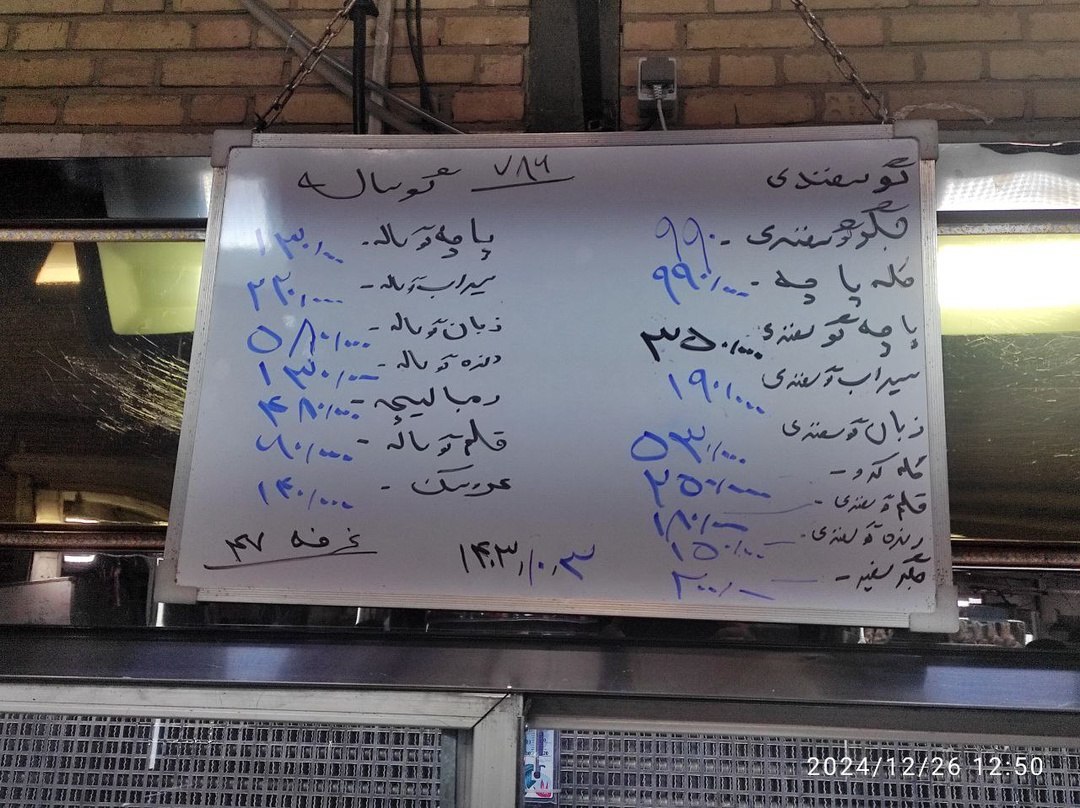 ۷۸۶
گوسفندی
جگر گوسفندی - ۹۹۰
کله پاچه - ۹۹۰/۰۰۰
پاچه گوسفندی ۳۵۰/۰۰۰
سیراب گوسفندی ۱۹۰/۰۰۰
زبان گوسفندی ۵۳۰/۰۰۰
کله کرد - ۲۵۰/۰۰۰
قلم گوسفندی - ۱۸۰/۰۰۰
گوسفندی - ۱۵۰/۰۰۰
جگر سفید - ۲۰۰/۰۰۰
گوساله
پاچه گوساله - ۱۳۰/۰۰۰
سیراب گوساله - ۲۲۰/۰۰۰
زبان گوساله - ۵۸۰/۰۰۰
گوساله - ۱۳۰/۰۰۰
دمبالیچه ۴۸۰/۰۰۰
قلم گوساله - ۶۰/۰۰۰
- ۱۴۰/۰۰۰
غرفه ۴۷
۱۴۰۳/۱۰/۰۳
2024/12/26 12:50